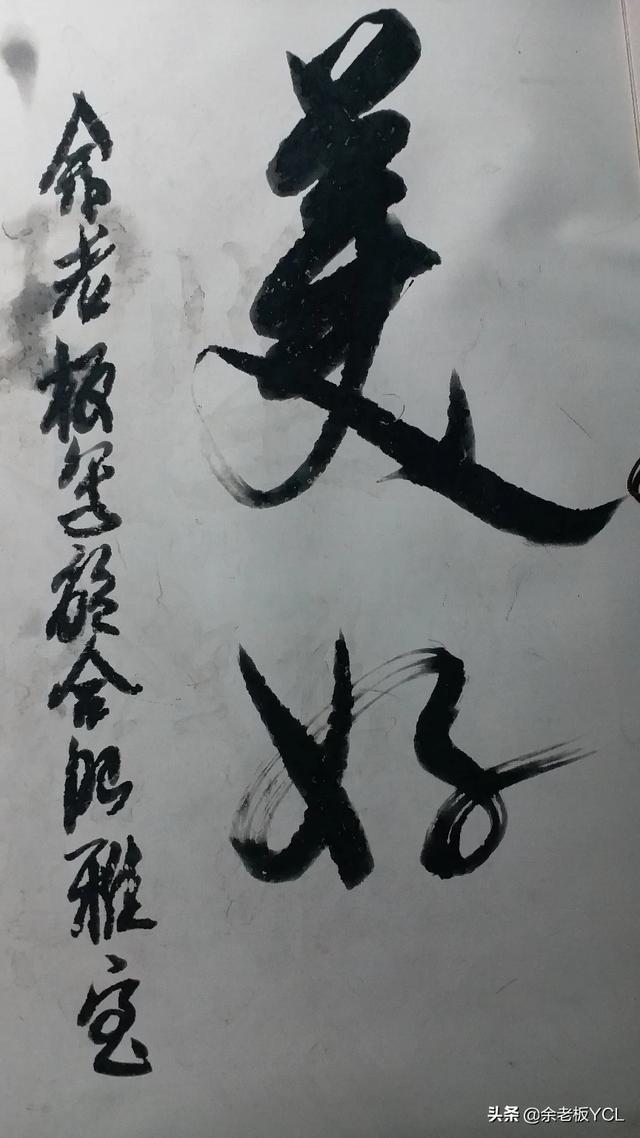 美好
余老板书于合肥雅室
头条 @余老板YCL